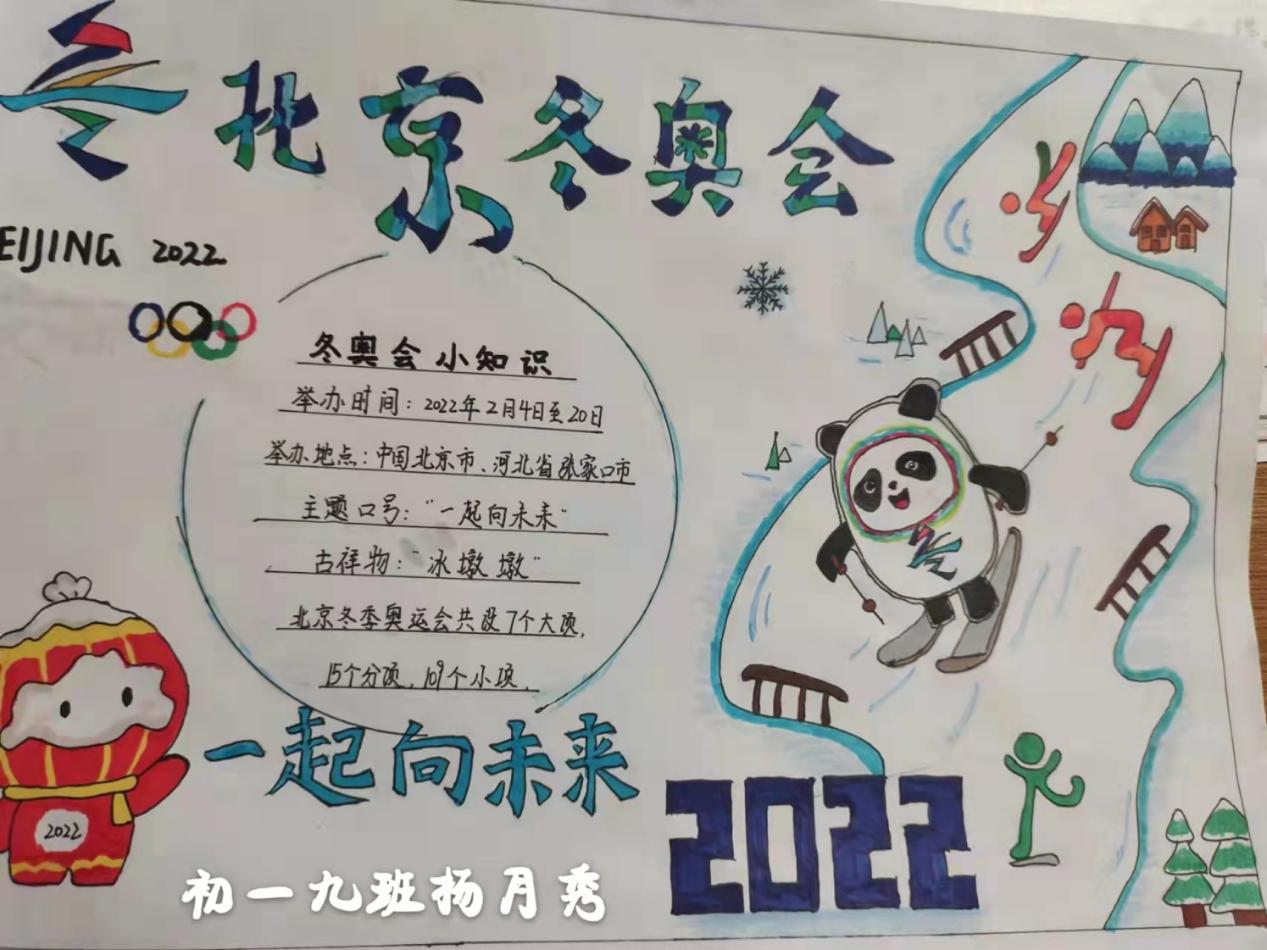 北京冬奥会
EIJING 2022
冬奥会小知识
举办时间：2022年2月4日至20日
举办地点：中国北京市、河北省张家口市
主题口号："一起向未来"
吉祥物："冰墩墩"
北京冬季奥运会共设7个大项，
15个分项，109个小项。
一起向未来
2022
2022
初一九班杨月秀